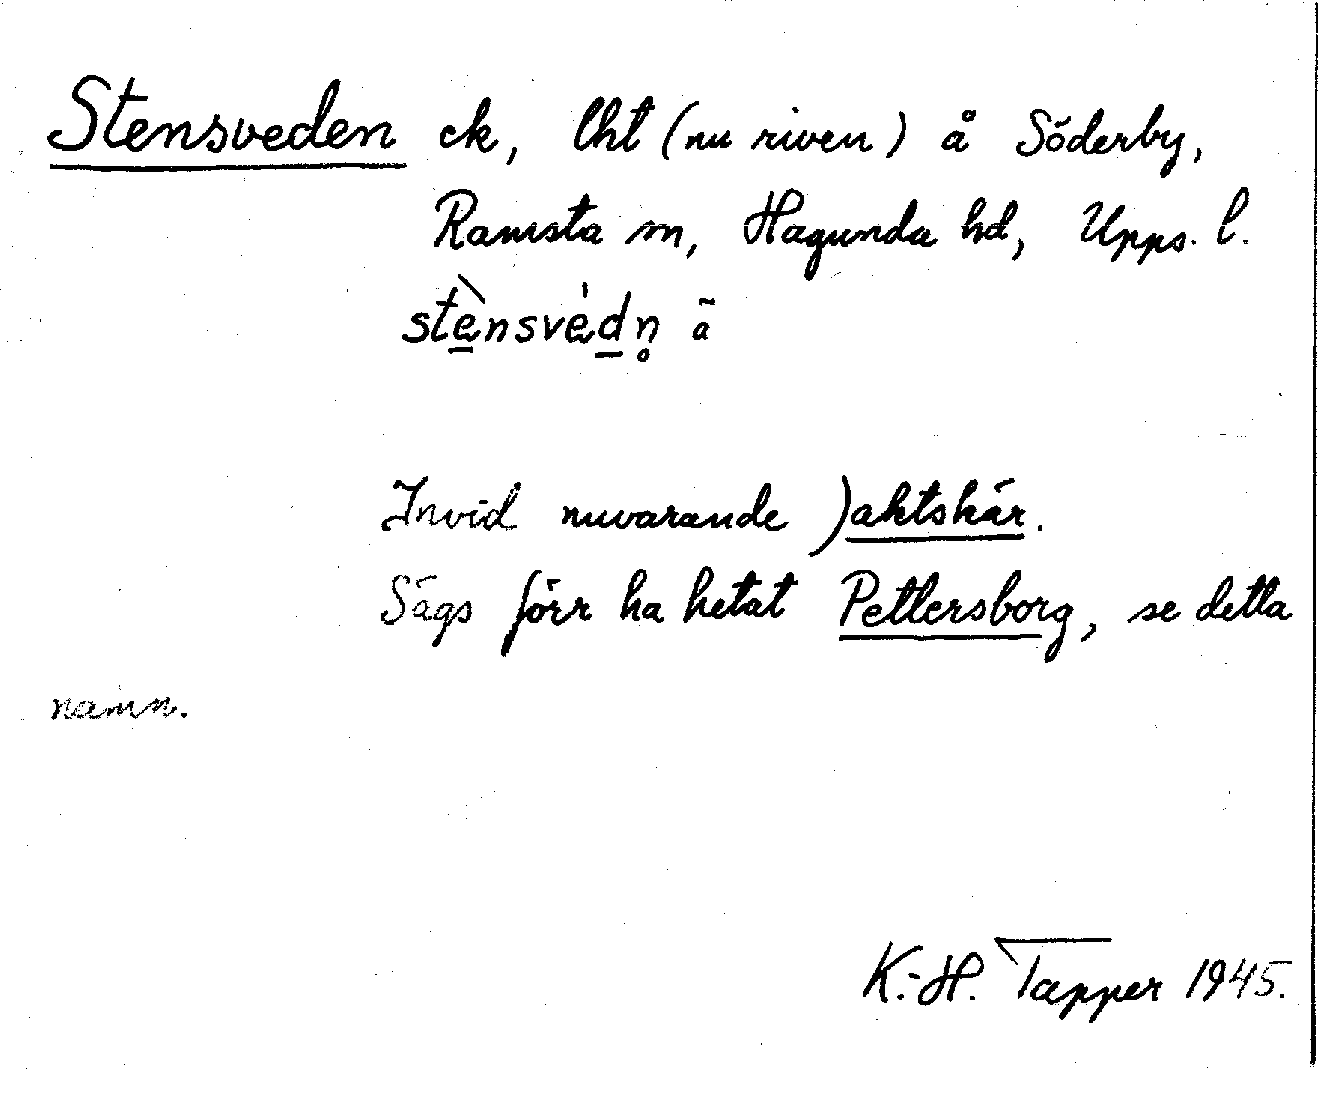 Stensveden ck, lht (nu riven) å Söderby,
Ramsta sn, Hagunda hd, Upps. l.
stènsvèdn̥ ã
Invid nuvarande Jaktskär.
Sägs förr ha hetat Pettersborg, se detta
namn.
K.-H. Tapper 1945.